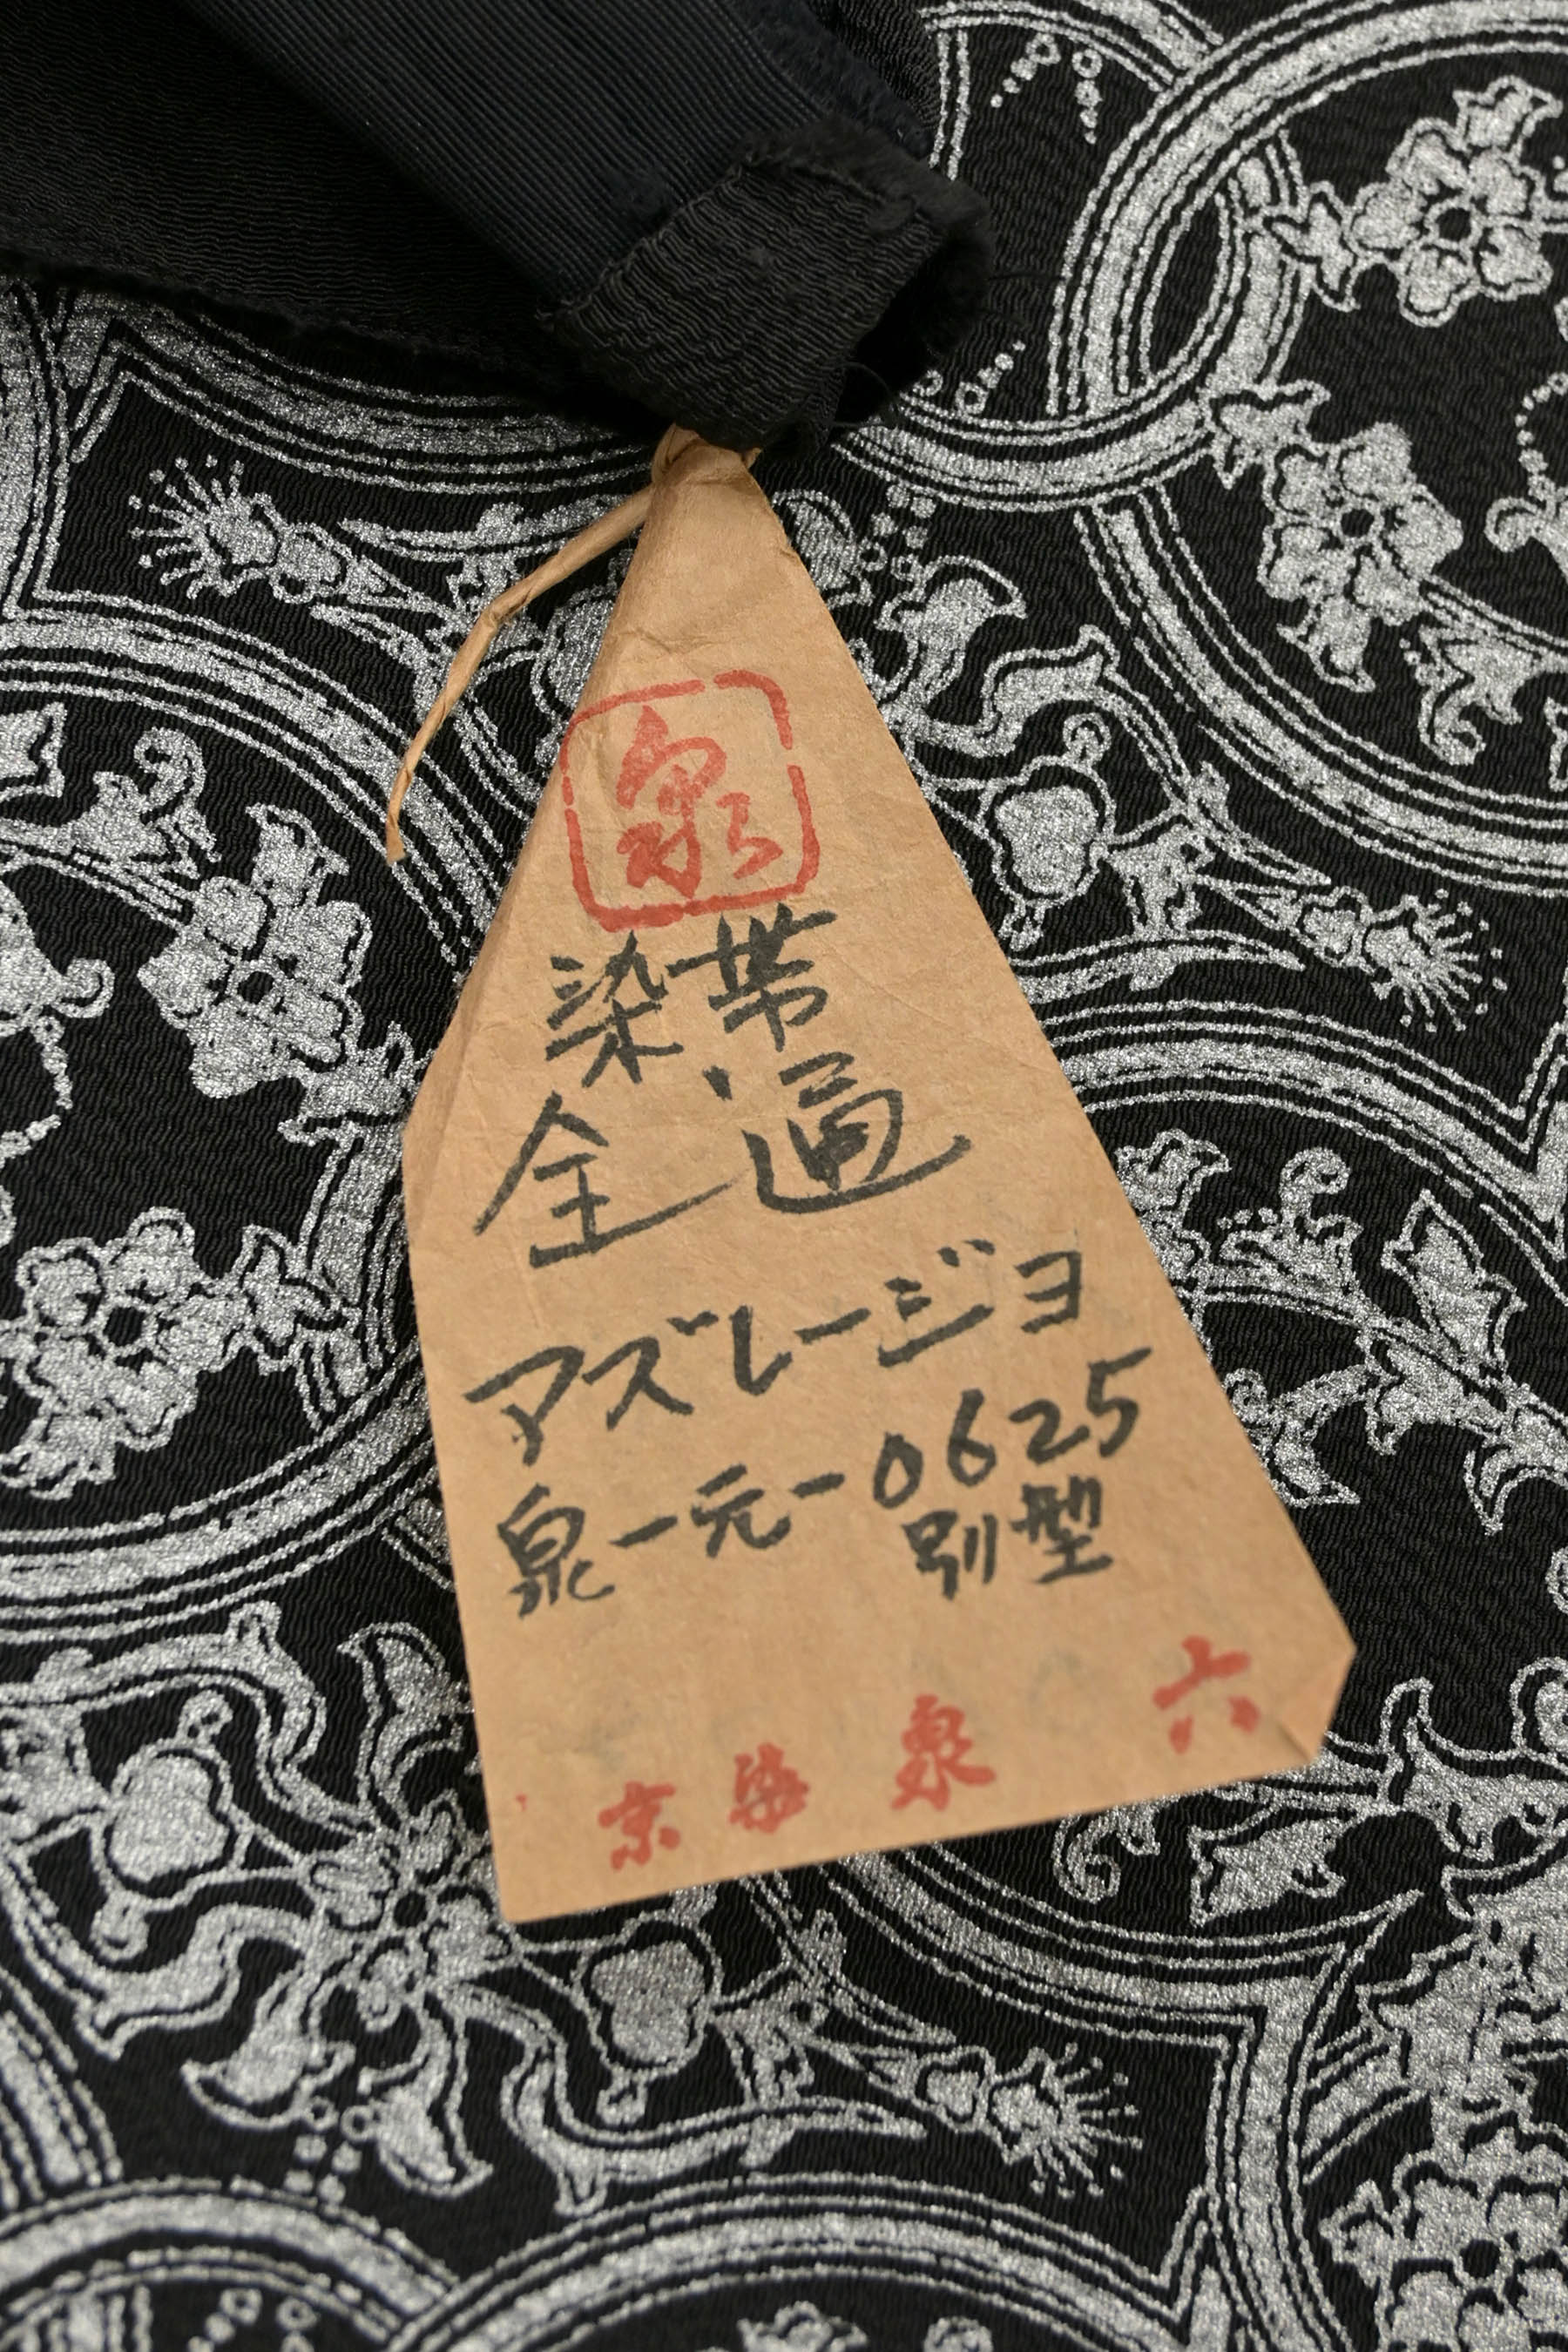 泉
染帯
全通
アズレージョ
泉-元-0625
別型
京染泉 六